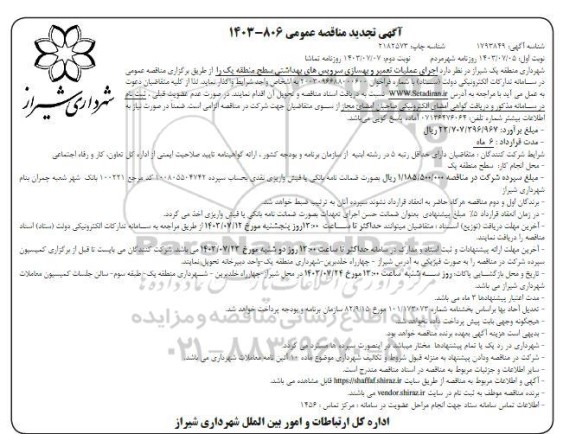 آگهی تجدید مناقصه عمومی ۸۰۶-۱۴۰۳
شناسه آگهی: ۱۷۹۳۸۴۹ شناسه چاپ: ۲۱۸۲۵۷۳
نوبت اول: ۱۴۰۳/۰۷/۰۵ روزنامه شهرمردم نوبت دوم: ۱۴۰۳/۰۷/۰۷ روزنامه تماشا
شهرداری منطقه یک شیراز در نظر دارد اجرای عملیات تعمیر و بهسازی سرویس های بهداشتی سطح منطقه یک را از طریق برگزاری مناقصه عمومی
در سامانه تدارکات الکترونیکی دولت (ستاد) با شماره فراخوان به اشخاص واجد شرایط واگذار نماید. لذا از کلیه متقاضیان دعوت
به عمل می آید با مراجعه به آدرس WWW.Setadiran.ir نسبت به دریافت اسناد مناقصه و تحویل آن اقدام نمایند. در صورت عدم عضویت قبلی، ثبت نام
در سامانه مذکور و دریافت گواهی امضای الکترونیکی صاحبان امضای مجاز از سوی متقاضیان جهت شرکت در مناقصه الزامی است. ضمنا در صورت نیاز به
اطلاعات بیشتر شماره تلفن: ۰۷۱۳۶۴۷۶۰۶۴ آماده پاسخ گویی می باشد.
- مبلغ برآورد: ۲۳/۷۰۷/۳۹۶/۹۶۷ ریال
- مدت قرارداد: ۶ ماه
شرایط شرکت کنندگان: متقاضیان دارای حداقل رتبه ۵ در رشته ابنیه از سازمان برنامه و بودجه کشور، ارائه گواهینامه تایید صلاحیت ایمنی از اداره کل تعاون، کار و رفاه اجتماعی
- محل انجام کار: سطح منطقه یک
- مبلغ سپرده شرکت در مناقصه ۱/۱۸۵/۵۰۰/۰۰۰ ریال بصورت ضمانت نامه بانکی یا فیش واریزی نقدی بحساب سپرده ۱۰۰۸۰۵۵۰۴۷۴۲ کد مرجع ۱۰۰۲۲۱ بانک شهر شعبه جمران بنام
شهرداری شیراز
- برندگان اول و دوم مناقصه هرگاه حاضر به انعقاد قرارداد نشوند سپرده آنان به ترتیب ضبط خواهد شد.
- در زمان انعقاد قرارداد ۵٪ مبلغ پیشنهادی بعنوان ضمانت حسن اجرای تعهدات بصورت ضمانت نامه بانکی یا فیش واریزی اخذ می گردد.
- آخرین مهلت دریافت (توزیع) اسناد: متقاضیان میتوانند حداکثر تا ساعت ۱۳:۰۰ روز پنجشنبه مورخ ۱۴۰۳/۰۷/۱۲ از طریق مراجعه به سامانه تدارکات الکترونیکی دولت (ستاد) اسناد
مناقصه را دریافت نمایند.
- آخرین مهلت ارائه پیشنهادات و ثبت اسناد و مدارک در سامانه حداکثر تا ساعت ۱۳:۰۰ روز دوشنبه مورخ ۱۴۰۳/۰۷/۲۳ می باشد. شرکت کنندگان می بایست تا قبل از برگزاری کمیسیون
سپرده شرکت در مناقصه را به صورت فیزیکی به آدرس شیراز - چهارراه خلدبرین - شهرداری منطقه یک - واحد دبیرخانه تحویل نمایند.
- تاریخ و محل بازگشایی پاکات: روز سه شنبه ساعت ۱۳:۰۰ مورخ ۱۴۰۳/۰۷/۲۴ در محل شیراز - چهارراه خلدبرین - شهرداری منطقه یک - طبقه سوم - سالن جلسات کمیسیون معاملات
شهرداری شیراز می باشد.
- مدت اعتبار پیشنهادها ۳ ماه می باشد.
- تعدیل آحاد بها براساس بخشنامه شماره ۱۰۱/۱۷۳۰۷۳ مورخ ۸۲/۹/۱۵ سازمان برنامه و بودجه پرداخت خواهد شد.
- هیچگونه وجهی بابت پیش پرداخت پرداخت نخواهد شد.
- بدیهی است هزینه آگهی بعهده برنده مناقصه خواهد بود.
- شهرداری در رد یک یا تمام پیشنهادها مختار میباشد در اینصورت سپرده ها مسترد می گردد.
- شرکت در مناقصه ودادن پیشنهاد به منزله قبول شروط و تکالیف شهرداری موضوع ماده ۱۰ آئین نامه معاملات شهرداری می باشد.
- سایر اطلاعات و جزئیات مربوط به مناقصه در اسناد مناقصه مندرج است.
- آگهی و اطلاعات مربوط به مناقصه از طریق سایت https://shaffaf.shiraz.ir قابل مشاهده می باشد.
- برنده مناقصه موظف به ثبت نام در سایت vendor.shiraz.ir می باشند.
- اطلاعات تماس سامانه ستاد جهت انجام مراحل عضویت در سامانه: مرکز تماس: ۱۴۵۶
اداره کل ارتباطات و امور بین الملل شهرداری شیراز
شهرداری شیراز